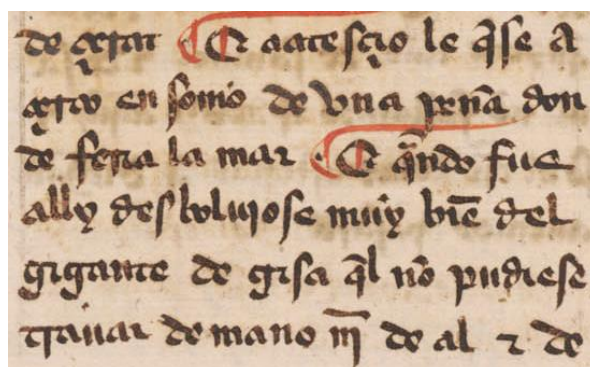 de ¶ Et acaesçio le q̃ se a
çerco en somo de vna peña don
de feria la mar ¶ Et q̃ndo fue
ally desboluiose muy biẽ del
gigante de gisa q̃l nõ pudiese
trauar de mano nj̃ de al ⁊ de